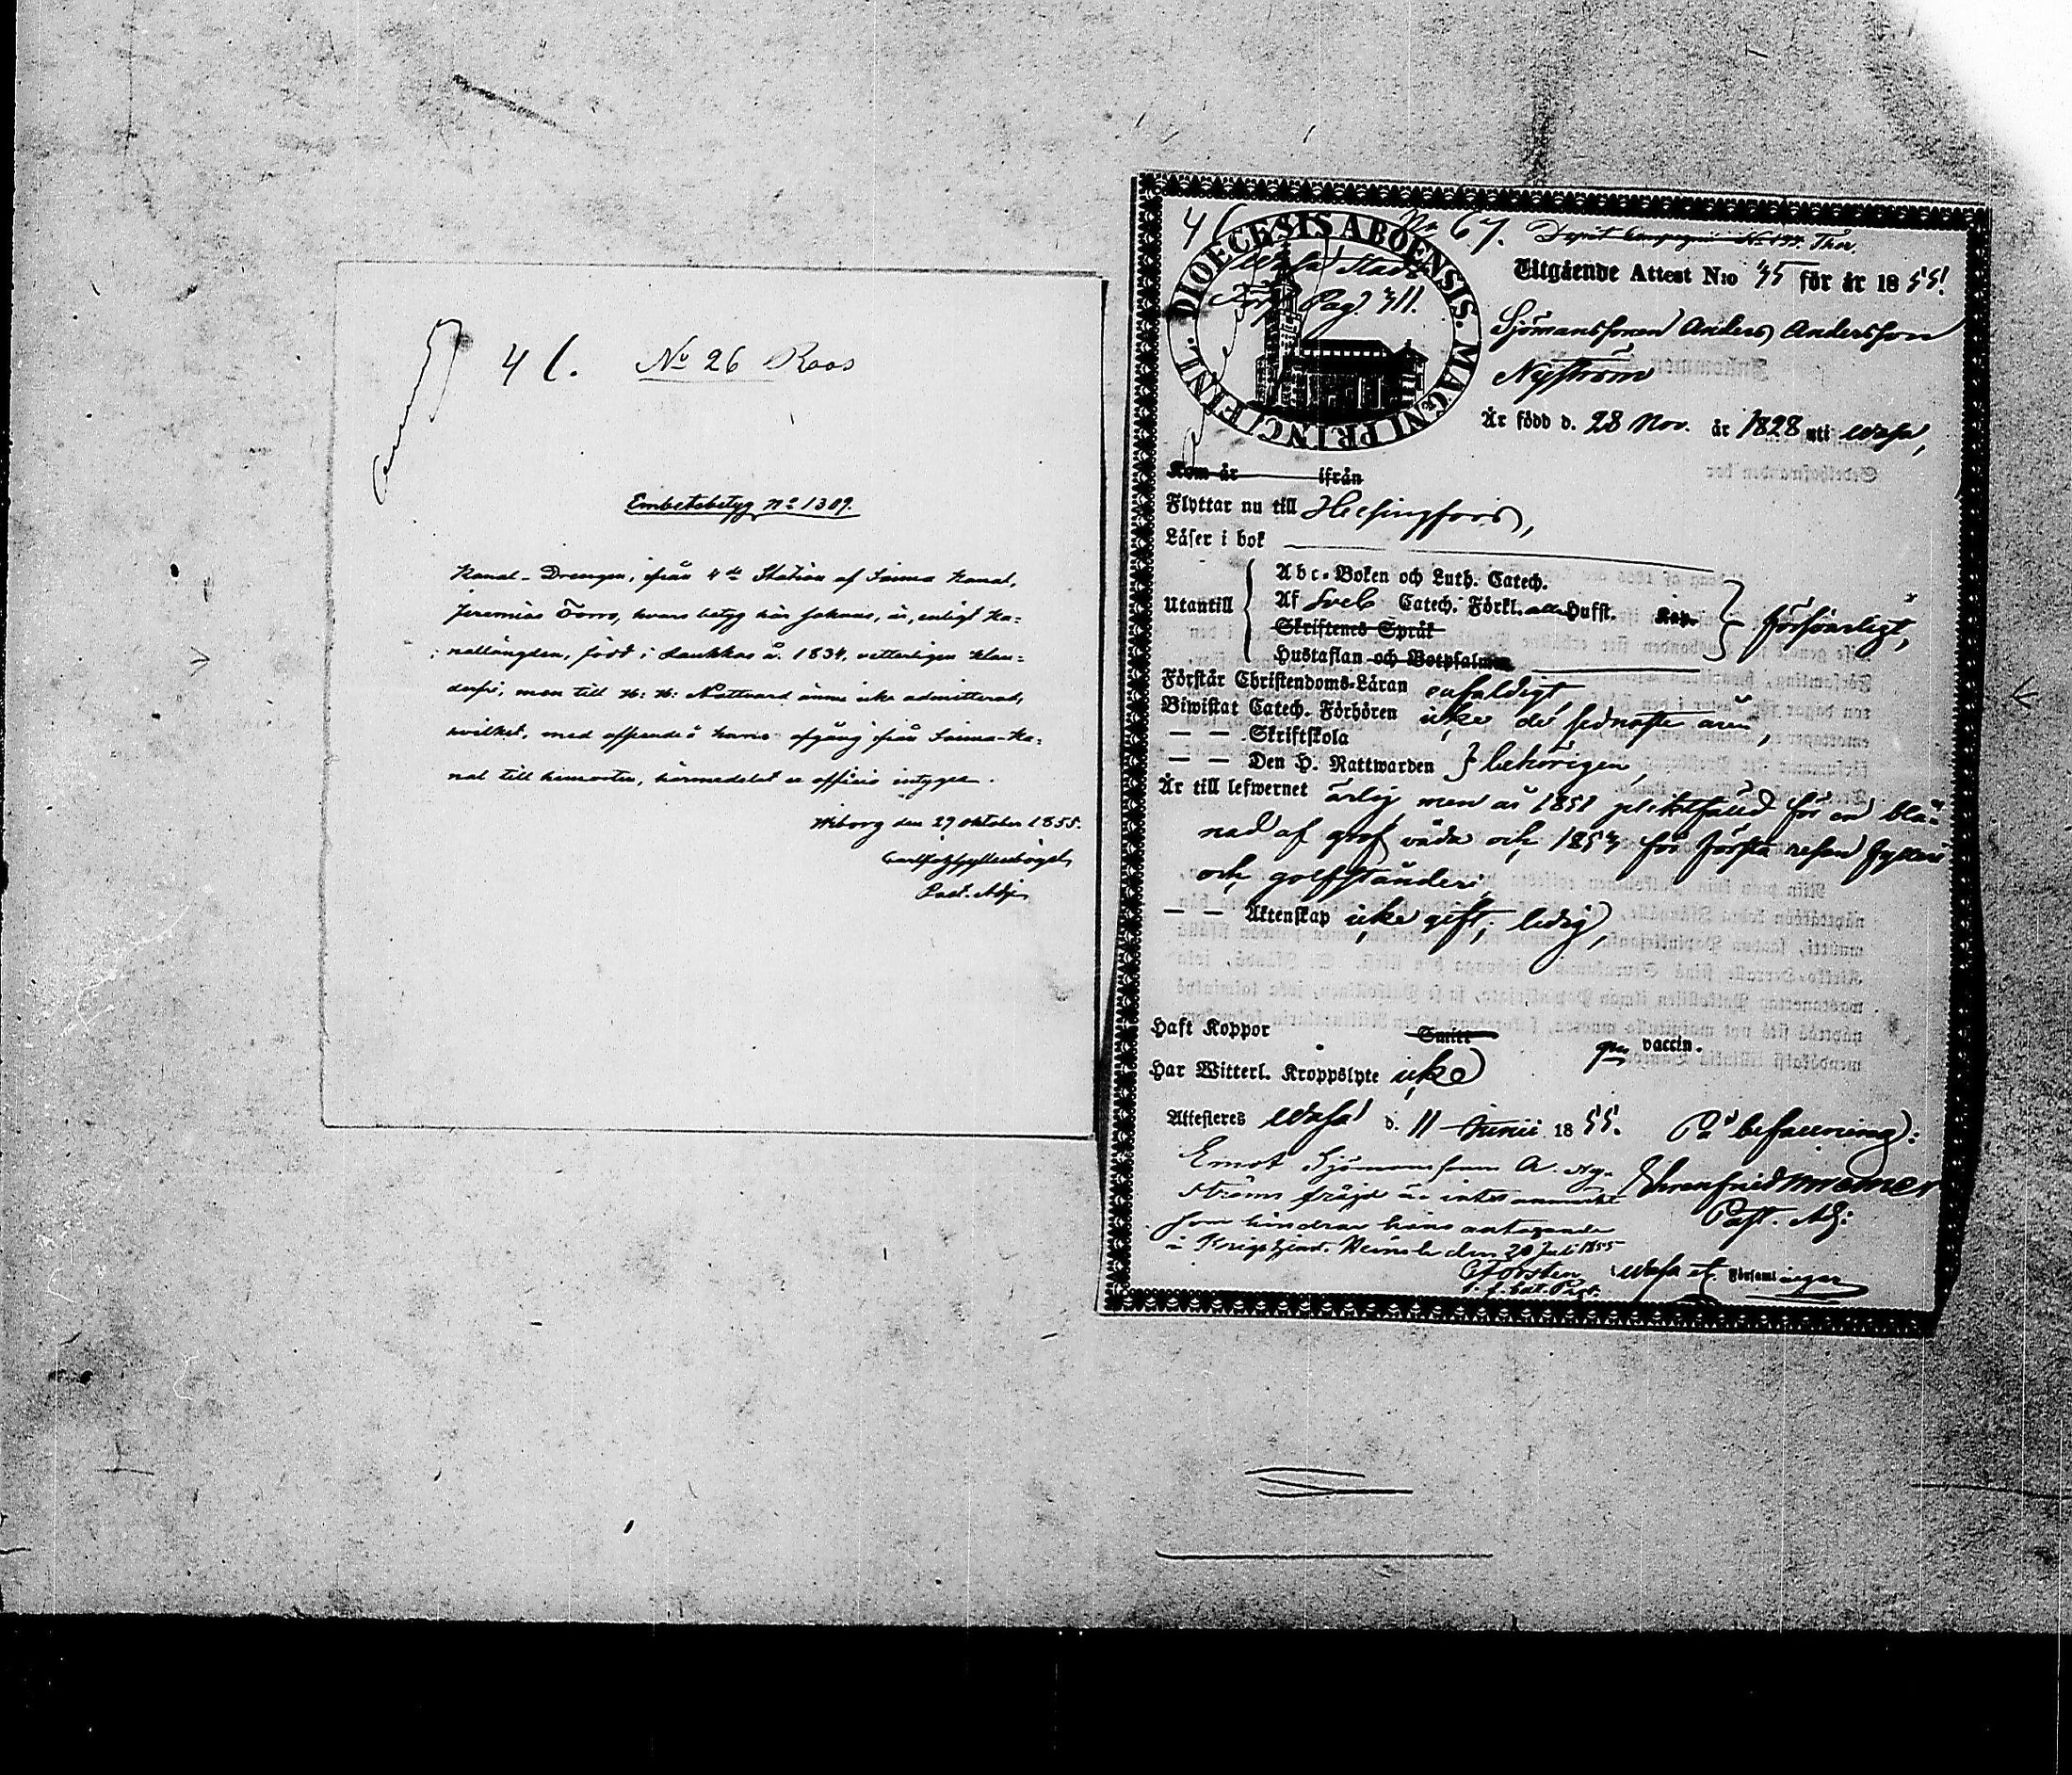 4 l. No 26 Roos
Embetsbetyg No 1309.
Kanal-Drengen, ifrån 4de Station af Saima Kanal,
Jeremias Torro, hvars betyg här saknas, är, enligt Ka-
nallängden, född i Laukkas å. 1834, vitterligen klan-
derfri, men till H: H: Nattvard ännu icke admitterad,
hvilket, med afseende å hans afgång ifrån Saima-Ka-
nal till hemorten, härmedelst ex officio intygar.
Wiborg den 29 oktober 1855.
Past. Adj.
4 No 67. Thor.
DIOECESIS ABOENSIS. MAGNI PRINC. FINL.
Wasa Stads
Pag. 311.
Utgående Attest N:o 35 för år 1855.
Sjömanssonen Anders Andersson
Nyström
Är född d. 28 Nov. år 1828 uti Wasa,
Kom år ifrån
Flyttar nu till Helsingfors,
Läser i bok
Utantill
Abc-Boken och Luth. Catech.
Af Sveb. Catech. Förkl. Hufst. Kap.
Skriftenes Språk
Hustaflan och Botpsalmen
försvarligt,
Förstår Christendoms-Läran enfaldigt,
Biwistat Catech. Förhören icke de sednaste åren,
— — Skriftskola
— — Den H. Nattwarden } behörigen,
Är till lefwernet ärlig men år 1851 pliktfäld för en blå-
nad af grof våda och 1853 för första resan fylleri
och golfständeri,
— — Äktenskap icke gift, ledig,
Haft Koppor Smitt vaccin.
Har Witterl. Kroppslyte icke
Attesteres Wasa d. 11 Junii 1855. På befallning:
Emot Sjömanssonen A. Ny-
ströms fräjd är intet anmärkt
som hindrar hans antagande
i Krigstjenst. den 20 Juli 1855
Past. Adj:
Wasa et. Församlingar